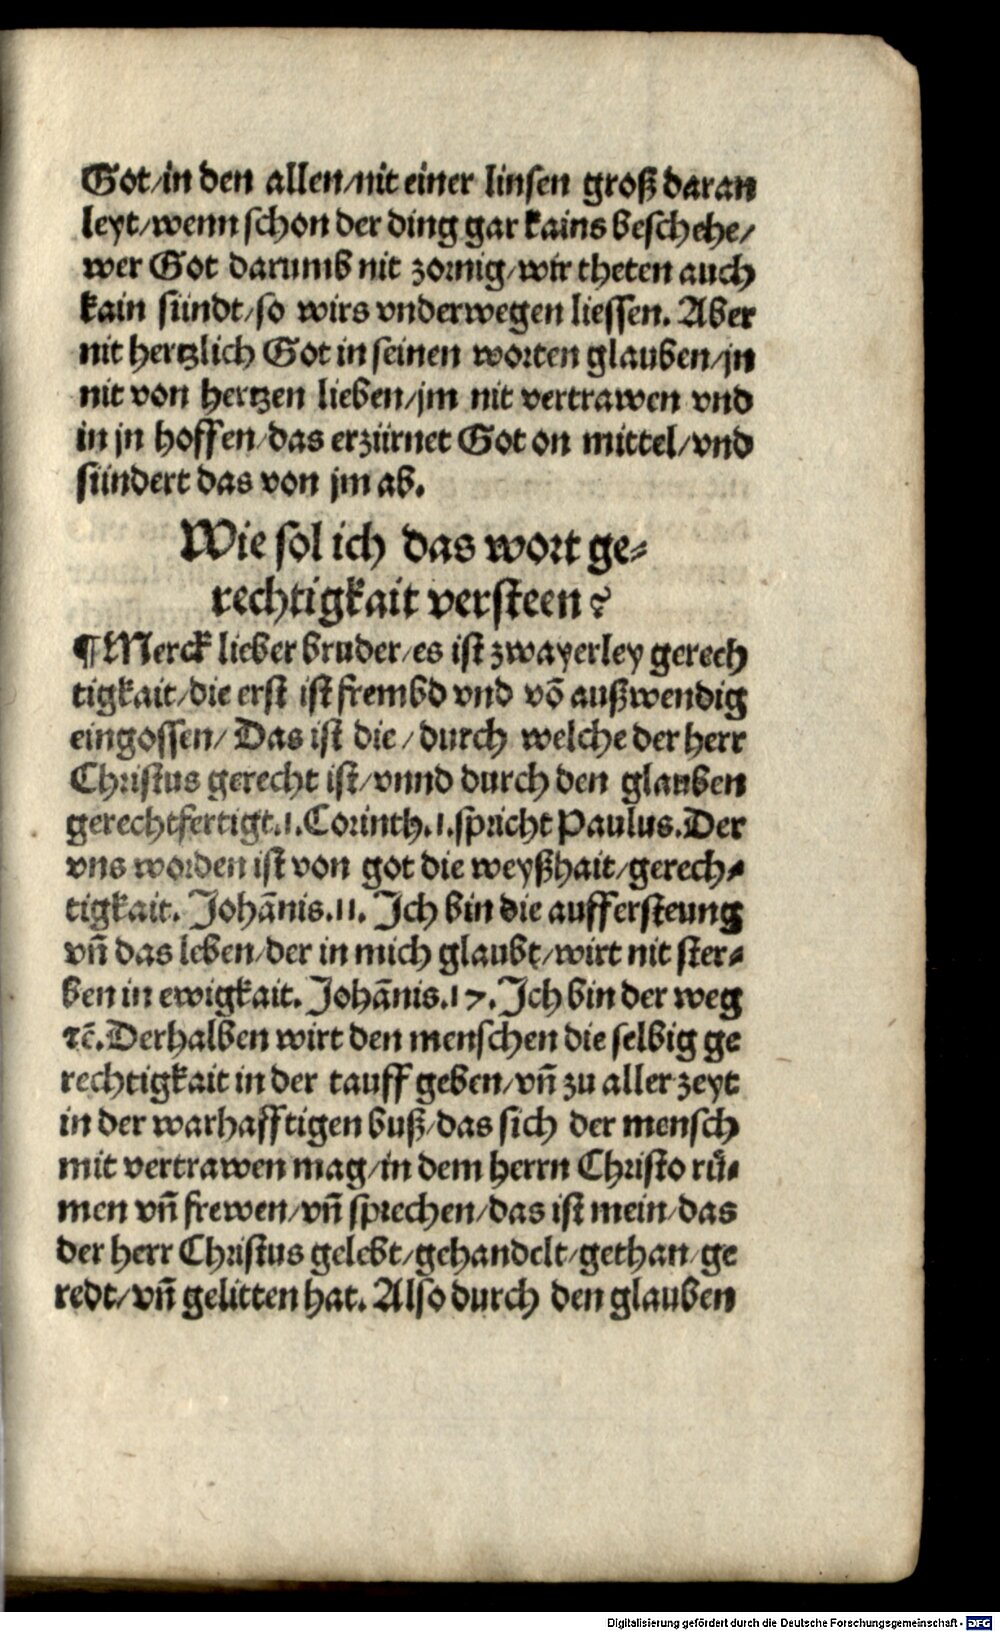 Got/in den allen/nit einer linsen groß daran
leyt/wenn schon der ding gar kains beschehe/
wer Got darumb nit zornig/wir theten auch
kain sündt/so wirs vnderwegen liessen. Aber
nit hertzlich Got in seinen worten glauben/jn
nit von hertzen lieben/jm nit vertrawen vnd
in jn hoffen/das erzürnet Got on mittel/vnd
sündert das von jm ab.
Wie sol ich das wort ge⸗
rechtigkait versteen?
¶Merck lieber bruder/es ist zwayerley gerech
tigkait/die erst ist frembd vnd võ außwendig
eingossen/Das ist die/durch welche der herr
Christus gerecht ist/vnnd durch den glauben
gerechtfertigt.1.Corinth.1.spricht Paulus.Der
vns worden ist von got die weyßhait/gerech⸗
tigkait. Johãnis.11. Ich bin die auffersteung
vñ das leben/der in mich glaubt/wirt nit ster⸗
ben in ewigkait. Johãnis.17. Ich bin der weg
ꝛc̃.Derhalben wirt den menschen die selbig ge
rechtigkait in der tauff geben/vñ zu aller zeyt
in der warhafftigen buß/das sich der mensch
mit vertrawen mag/in dem herrn Christo rů⸗
men vñ frewen/vñ sprechen/das ist mein/das
der herr Christus gelebt/gehandelt/gethan/ge
redt/vñ gelitten hat. Also durch den glauben
Digitalisierung gefördert durch die Deutsche Forschungsgemeinschaft - DFG